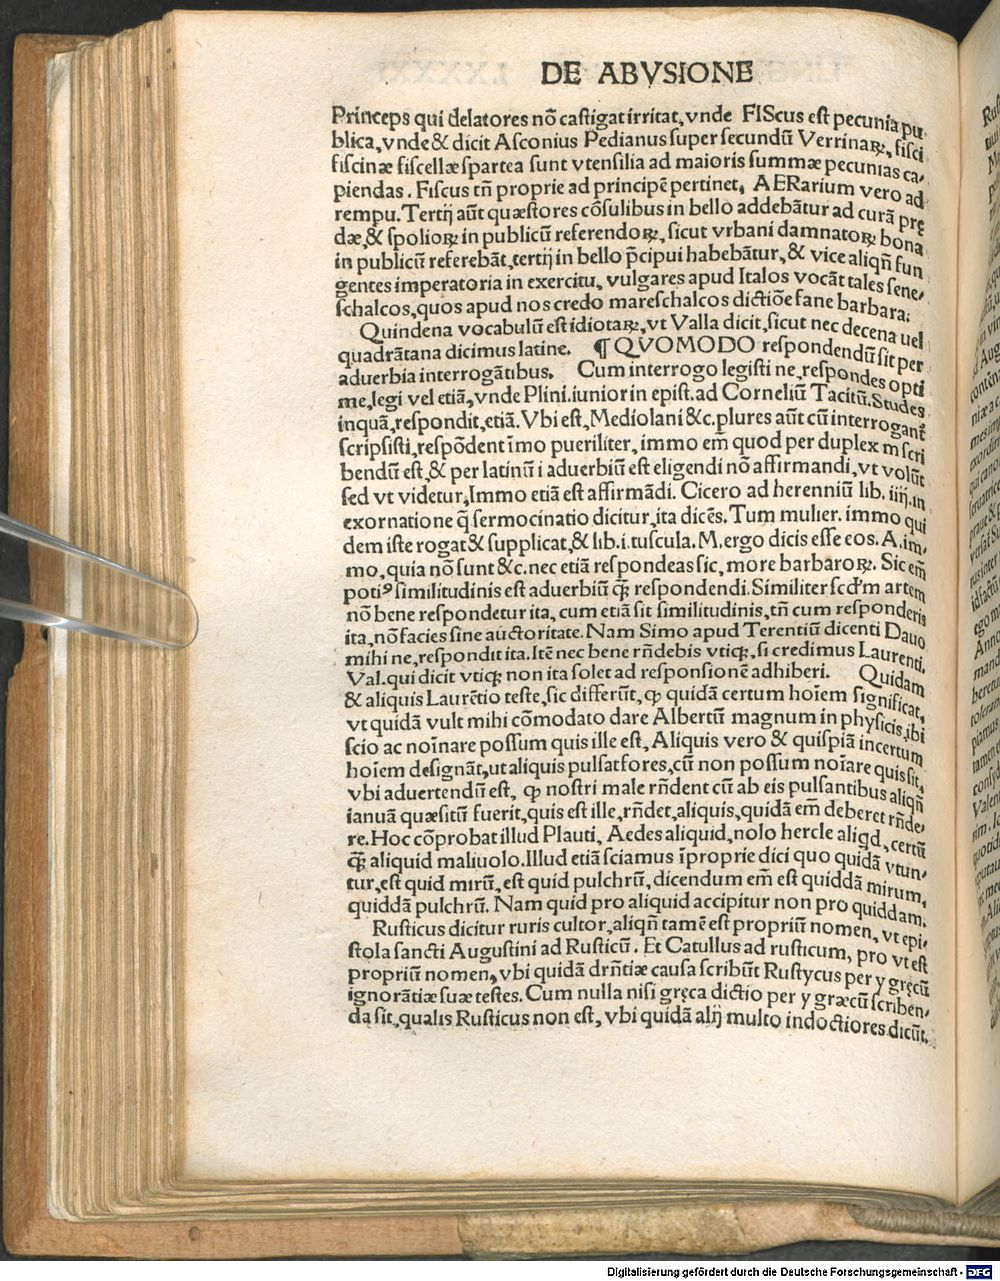 DE ABVSIONE
Princeps qui delatores nõ castigat irritat, vnde FIScus est pecunia pu-
blica, vnde & dicit Asconius Pedianus super secundũ Verrinaꝝ, fisci
fiscinæ fiscellæ spartea sunt vtensilia ad maioris summæ pecunias ca-
piendas. Fiscus tñ proprie ad principẽ pertinet, AERarium vero ad
rempu. Tertij aũt quæstores cõsulibus in bello addebãtur ad curã prę
dæ, & spolioꝝ in publicũ referendoꝝ, sicut vrbani damnatoꝝ bona
in publicũ referebãt, tertij in bello p̃cipui habebãtur, & vice aliqñ fun
gentes imperatoria in exercitu, vulgares apud Italos vocãt tales sene-
schalcos, quos apud nos credo mareschalcos dictiõe sane barbara.
Quindena vocabulũ est idiotaꝝ, vt Valla dicit, sicut nec decena uel
quadrãtana dicimus latine. ¶ QVOMODO respondendũ sit per
aduerbia interrogãtibus. Cum interrogo legisti ne, respondes opti
me, legi vel etiã, vnde Plini. iunior in epist. ad Corneliũ Tacitũ. Studes
inquã, respondit, etiã. Vbi est, Mediolani &c. plures aũt cũ interrogant̃
scripsisti, respõdent ĩmo pueriliter, immo em̃ quod per duplex m scri
bendũ est, & per latinũ i aduerbiũ est eligendi nõ affirmandi, vt volũt
sed vt videtur, Immo etiã est affirmãdi. Cicero ad herenniũ lib. iiij. in
exornatione q̃ sermocinatio dicitur, ita dicẽs. Tum mulier. immo qui
dem iste rogat & supplicat, & lib. i. tuscula. M. ergo dicis esse eos. A. im-
mo, quia nõ sunt &c. nec etiã respondeas sic, more barbaroꝝ. Sic em̃
potiꝰ similitudinis est aduerbiũ q̃ꝫ respondendi. Similiter scd'm artem
nõ bene respondetur ita, cum etiã sit similitudinis, tñ cum responderis
ita, nõ facies sine auctoritate. Nam Simo apud Terentiũ dicenti Dauo
mihi ne, respondit ita. Itẽ nec bene rñdebis vtiqꝫ, si credimus Laurenti.
Val. qui dicit vtiqꝫ non ita solet ad responsionẽ adhiberi. Quidam
& aliquis Laurẽtio teste, sic differũt, ꝙ quidã certum hoĩem significat,
vt quidã vult mihi cõmodato dare Albertũ magnum in physicis, ibi
scio ac noĩnare possum quis ille est, Aliquis vero & quispiã incertum
hoĩem designãt, ut aliquis pulsat fores, cũ non possum noĩare quis sit,
vbi aduertendũ est, ꝙ nostri male rñdent cũ ab eis pulsantibus aliqñ
ianuã quæsitũ fuerit, quis est ille, rñdet, aliquis, quidã em̃ deberet rñde-
re. Hoc cõprobat illud Plauti, Aedes aliquid, nolo hercle aliqd, certũ
q̃ꝫ aliquid maliuolo. Illud etiã sciamus ĩproprie dici quo quidã vtun-
tur, est quid mirũ, est quid pulchrũ, dicendum em̃ est quiddã mirum,
quiddã pulchrũ. Nam quid pro aliquid accipitur non pro quiddam.
Rusticus dicitur ruris cultor, aliqñ tamẽ est propriũ nomen, vt epi-
stola sancti Augustini ad Rusticũ. Et Catullus ad rusticum, pro vt est
propriũ nomen, vbi quidã drñtiæ causa scribũt Rustycus per y gręcũ
ignorãtiæ suæ testes. Cum nulla nisi gręca dictio per y græcũ scriben-
da sit, qualis Rusticus non est, vbi quidã alij multo indoctiores dicũt,
Digitalisierung gefördert durch die Deutsche Forschungsgemeinschaft - DFG